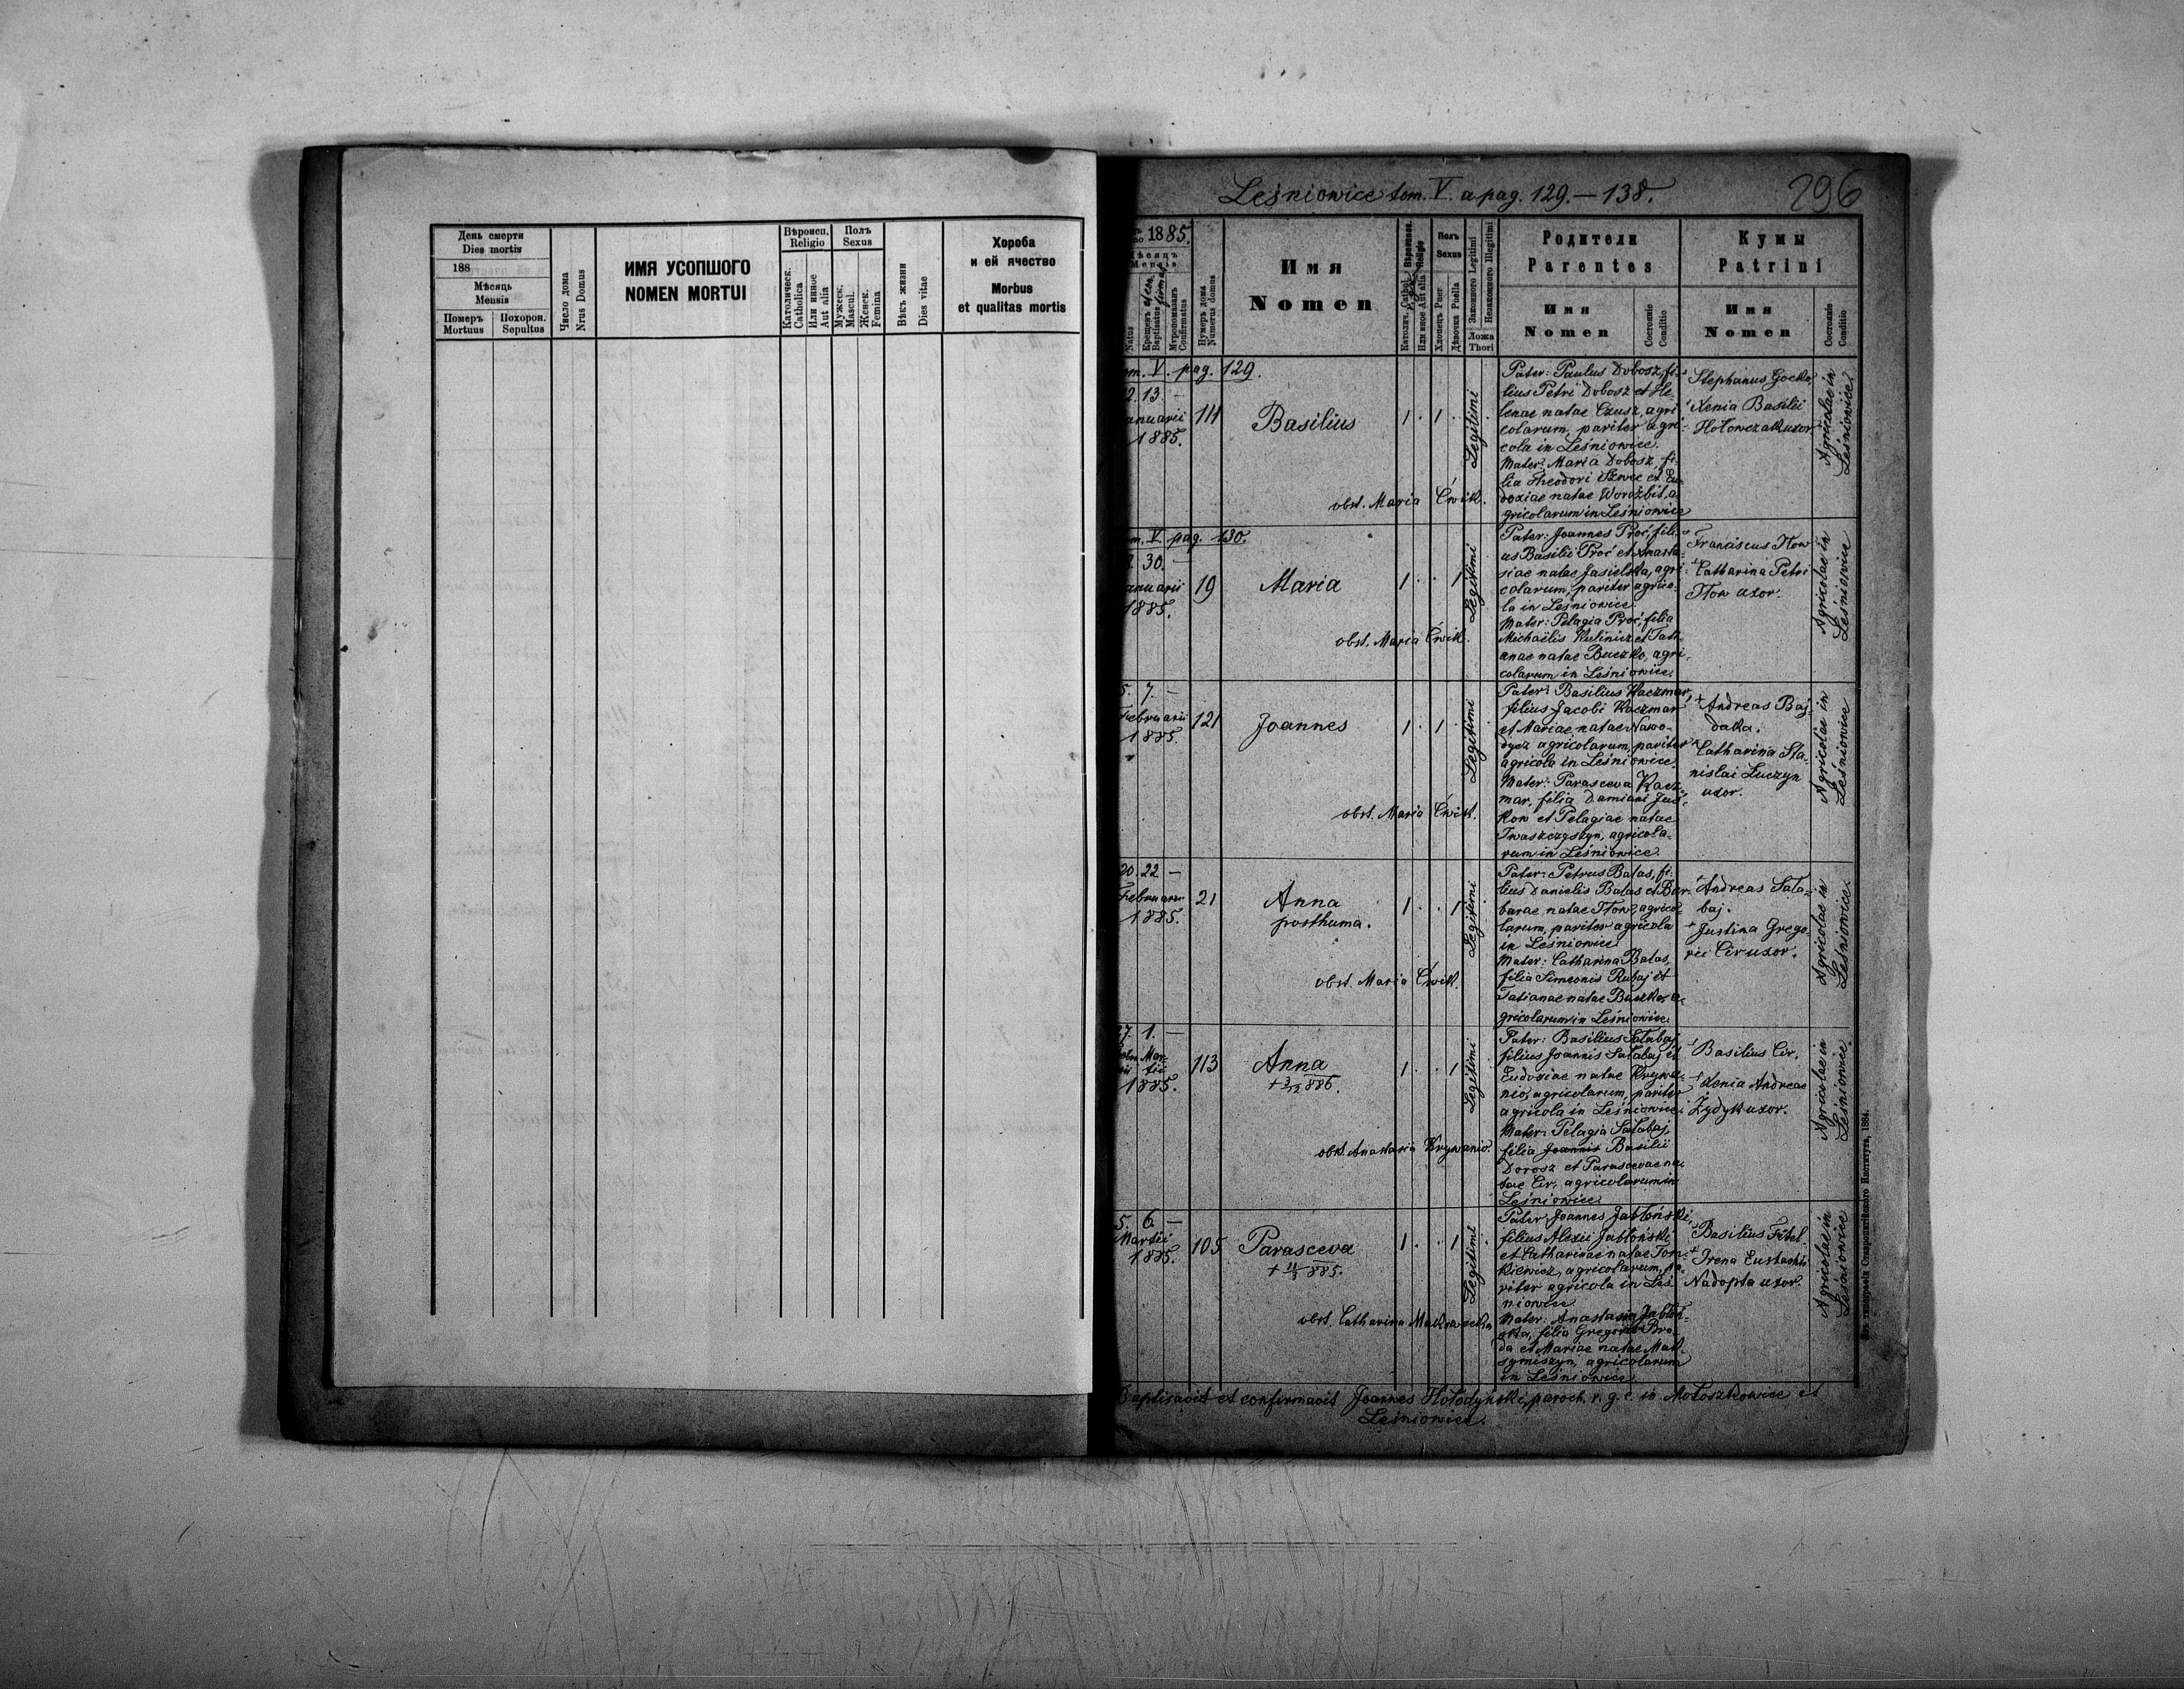 День смерти
Dies mortis
188
Мѣсяць
Mensis
Померъ
Mortuus
Похорон.
Sepultus
Число дома
Nrus Domus
ИМЯ УСОПШОГО
NOMEN MORTUI
Вѣроисп.
Religio
Католическ.
Catholica
Или инное
Aut alia
Полъ
Sexus
Мужеск.
Mascul.
Женск.
Femina
Вѣкъ жизни
Dies vitae
Хороба
и ей ячество
Morbus
et qualitas mortis
Leśniowice tom. V. a pag. 129.—138.
296
1885.
Мѣсяцъ
Mensis
Natus
Крещенъ
Baptisatus
Мѵропомазанъ
Confirmatus
Нумеръ дома
Numerus domus
Имя
Nomen
Вѣроиспов.
Religio
Католич. Cathol.
Или иное Aut alia
Полъ
Sexus
Хлопець Puer
Дѣвочка Puella
Законного Legitimi
Незаконного Illegitimi
Ложа
Thori
Родители
Parentes
Имя
Nomen
Состояніе
Conditio
Кумы
Patrini
Имя
Nomen
Состояніе
Conditio
V. pag. 129.
13. —
1885.
111
Basilius
1 . 1 .
Legitimi
obst. Maria Ćwik.
Pater: Paulus Dobosz, fi-
lius Petri Dobosz et He-
lenae natae Czusz, agri-
colarum, pariter agri-
cola in Leśniowice.
Mater: Maria Dobosz, fi-
lia Theodori Szwec et Eu-
doxiae natae Worożbit, a-
gricolarum in Leśniowice
Stephanus Gocko.
Xenia Basilii
Hołowczak uxor
Agricolae in
Leśniowice.
V. pag. 130.
30. —
1885.
19
Maria
1 . . 1
Legitimi
obst. Maria Ćwik.
Pater: Joannes Proć, fili-
us Basilii Proć et Anasta-
siae natae Jasielska, agri-
colarum, pariter agrico-
la in Leśniowice.
Mater: Pelagia Proć, filia
Michaëlis Kulinicz et Tati-
anae natae Buczko, agri-
colarum in Leśniowice.
Franciscus Tkow
Catharina Petri
Tkow uxor.
Agricolae in
Leśniowice
5. 7. —
Februarii
1885.
121
Joannes
1 . 1 .
Legitimi
obst. Maria Ćwik.
Pater: Basilius Kaczmar,
filius Jacobi Kaczmar
et Mariae natae Nawo-
dycz agricolarum, pariter
agricola in Leśniowice.
Mater: Parasceva Kacz-
mar, filia Damiani Jus-
kow et Pelagiae natae
Iwaszczyszyn, agricola-
rum in Leśniowice.
Andreas Baj-
daka.
Catharina Sta-
nislai Luczyn
uxor.
Agricolae in
Leśniowice
20. 22. —
Februarii
1885.
21
Anna
posthuma.
1 . . 1
Legitimi
obst. Maria Ćwik.
Pater: Petrus Bałas, fi-
lius Danielis Bałas et Bar-
barae natae Tkow, agrico-
larum, pariter agricola
in Leśniowice.
Mater: Catharina Bałas,
filia Simeonis Rubaj et
Tatianae natae Buczko, a-
gricolarum in Leśniowice.
Andreas Sała-
baj.
Justina Grego-
rii Cir uxor.
Agricolae in
Leśniowice.
27. 1. —
Mar-
tii
1885.
113
Anna
+ 3/12 886.
1 . . 1
Legitimi
obst. Anastasia Krywanio.
Pater: Basilius Sałabaj,
filius Joannis Sałabaj et
Eudoxiae natae Krywa-
nio, agricolarum, pariter
agricola in Leśniowice.
Mater: Pelagia Sałabaj
filia Joannis Basilii
Dorosz et Parascevae na-
tae Cir, agricolarum in
Leśniowice.
Basilius Cir.
Xenia Andreae
Żydyk uxor.
Agricolae in
Leśniowice
5. 6. —
Martii
1885.
105
Parasceva
+ 11/3 885.
1 . . 1
Legitimi
obst. Catharina
Pater: Joannes Jabłoński,
filius Alexii Jabłoński
et Catharinae natae Tom-
kiewicz, agricolarum, pa-
riter agricola in Leś-
niowice.
Mater: Anastasia Jabłoń-
ska, filia Gregorii Bro-
da et Mariae natae Mak-
symiszyn, agricolarum
in Leśniowice.
Basilius Fitel.
Irena Eustachii
Nadopta uxor.
Agricolae in
Leśniowice
Baptisavit et confirmavit Joannes Hołodyński, paroch. r. g. c. in Mołoszkowice et
Leśniowice.
Изъ типографіи Ставропигійского Института, 1884.